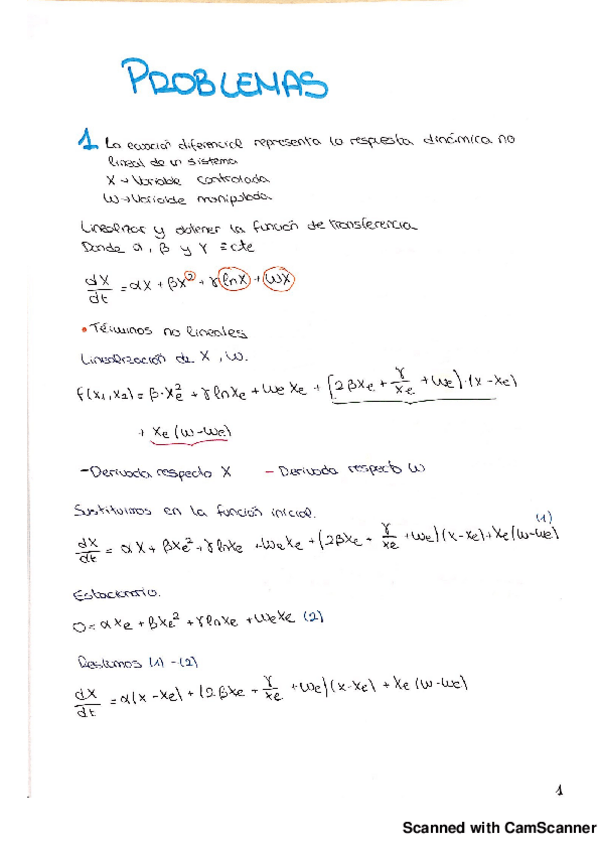 PROBLEMAS
1 La ecuación diferencial representa la respuesta dinámica no
lineal de un sistema
X → Variable controlada
W → Variable manipulada
Linealizar y obtener la función de transferencia.
Donde α, β y γ ≡ cte
dx/dt = αx + βx² + γ lnx + wx
• Términos no lineales
Linealización de X, W.
f(x₁,x₂) = β·xe² + γ lnxe + we xe + [2βxe + γ/xe + we]·(x-xe)
+ xe(w-we)
-Derivada respecto X - Derivada respecto W
Sustituimos en la función inicial.
dx/dt = αx + βxe² + γ lnxe + we xe + (2βxe + γ/xe + we)(x-xe) + xe(w-we) (1)
Estacionario.
0 = αxe + βxe² + γ lnxe + we xe (2)
Restamos (1) - (2)
dx/dt = α(x-xe) + (2βxe + γ/xe + we)(x-xe) + xe(w-we)
1
Scanned with CamScanner